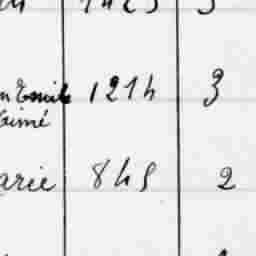 n Emile 1214 3
Aimé
arie 8h5 2